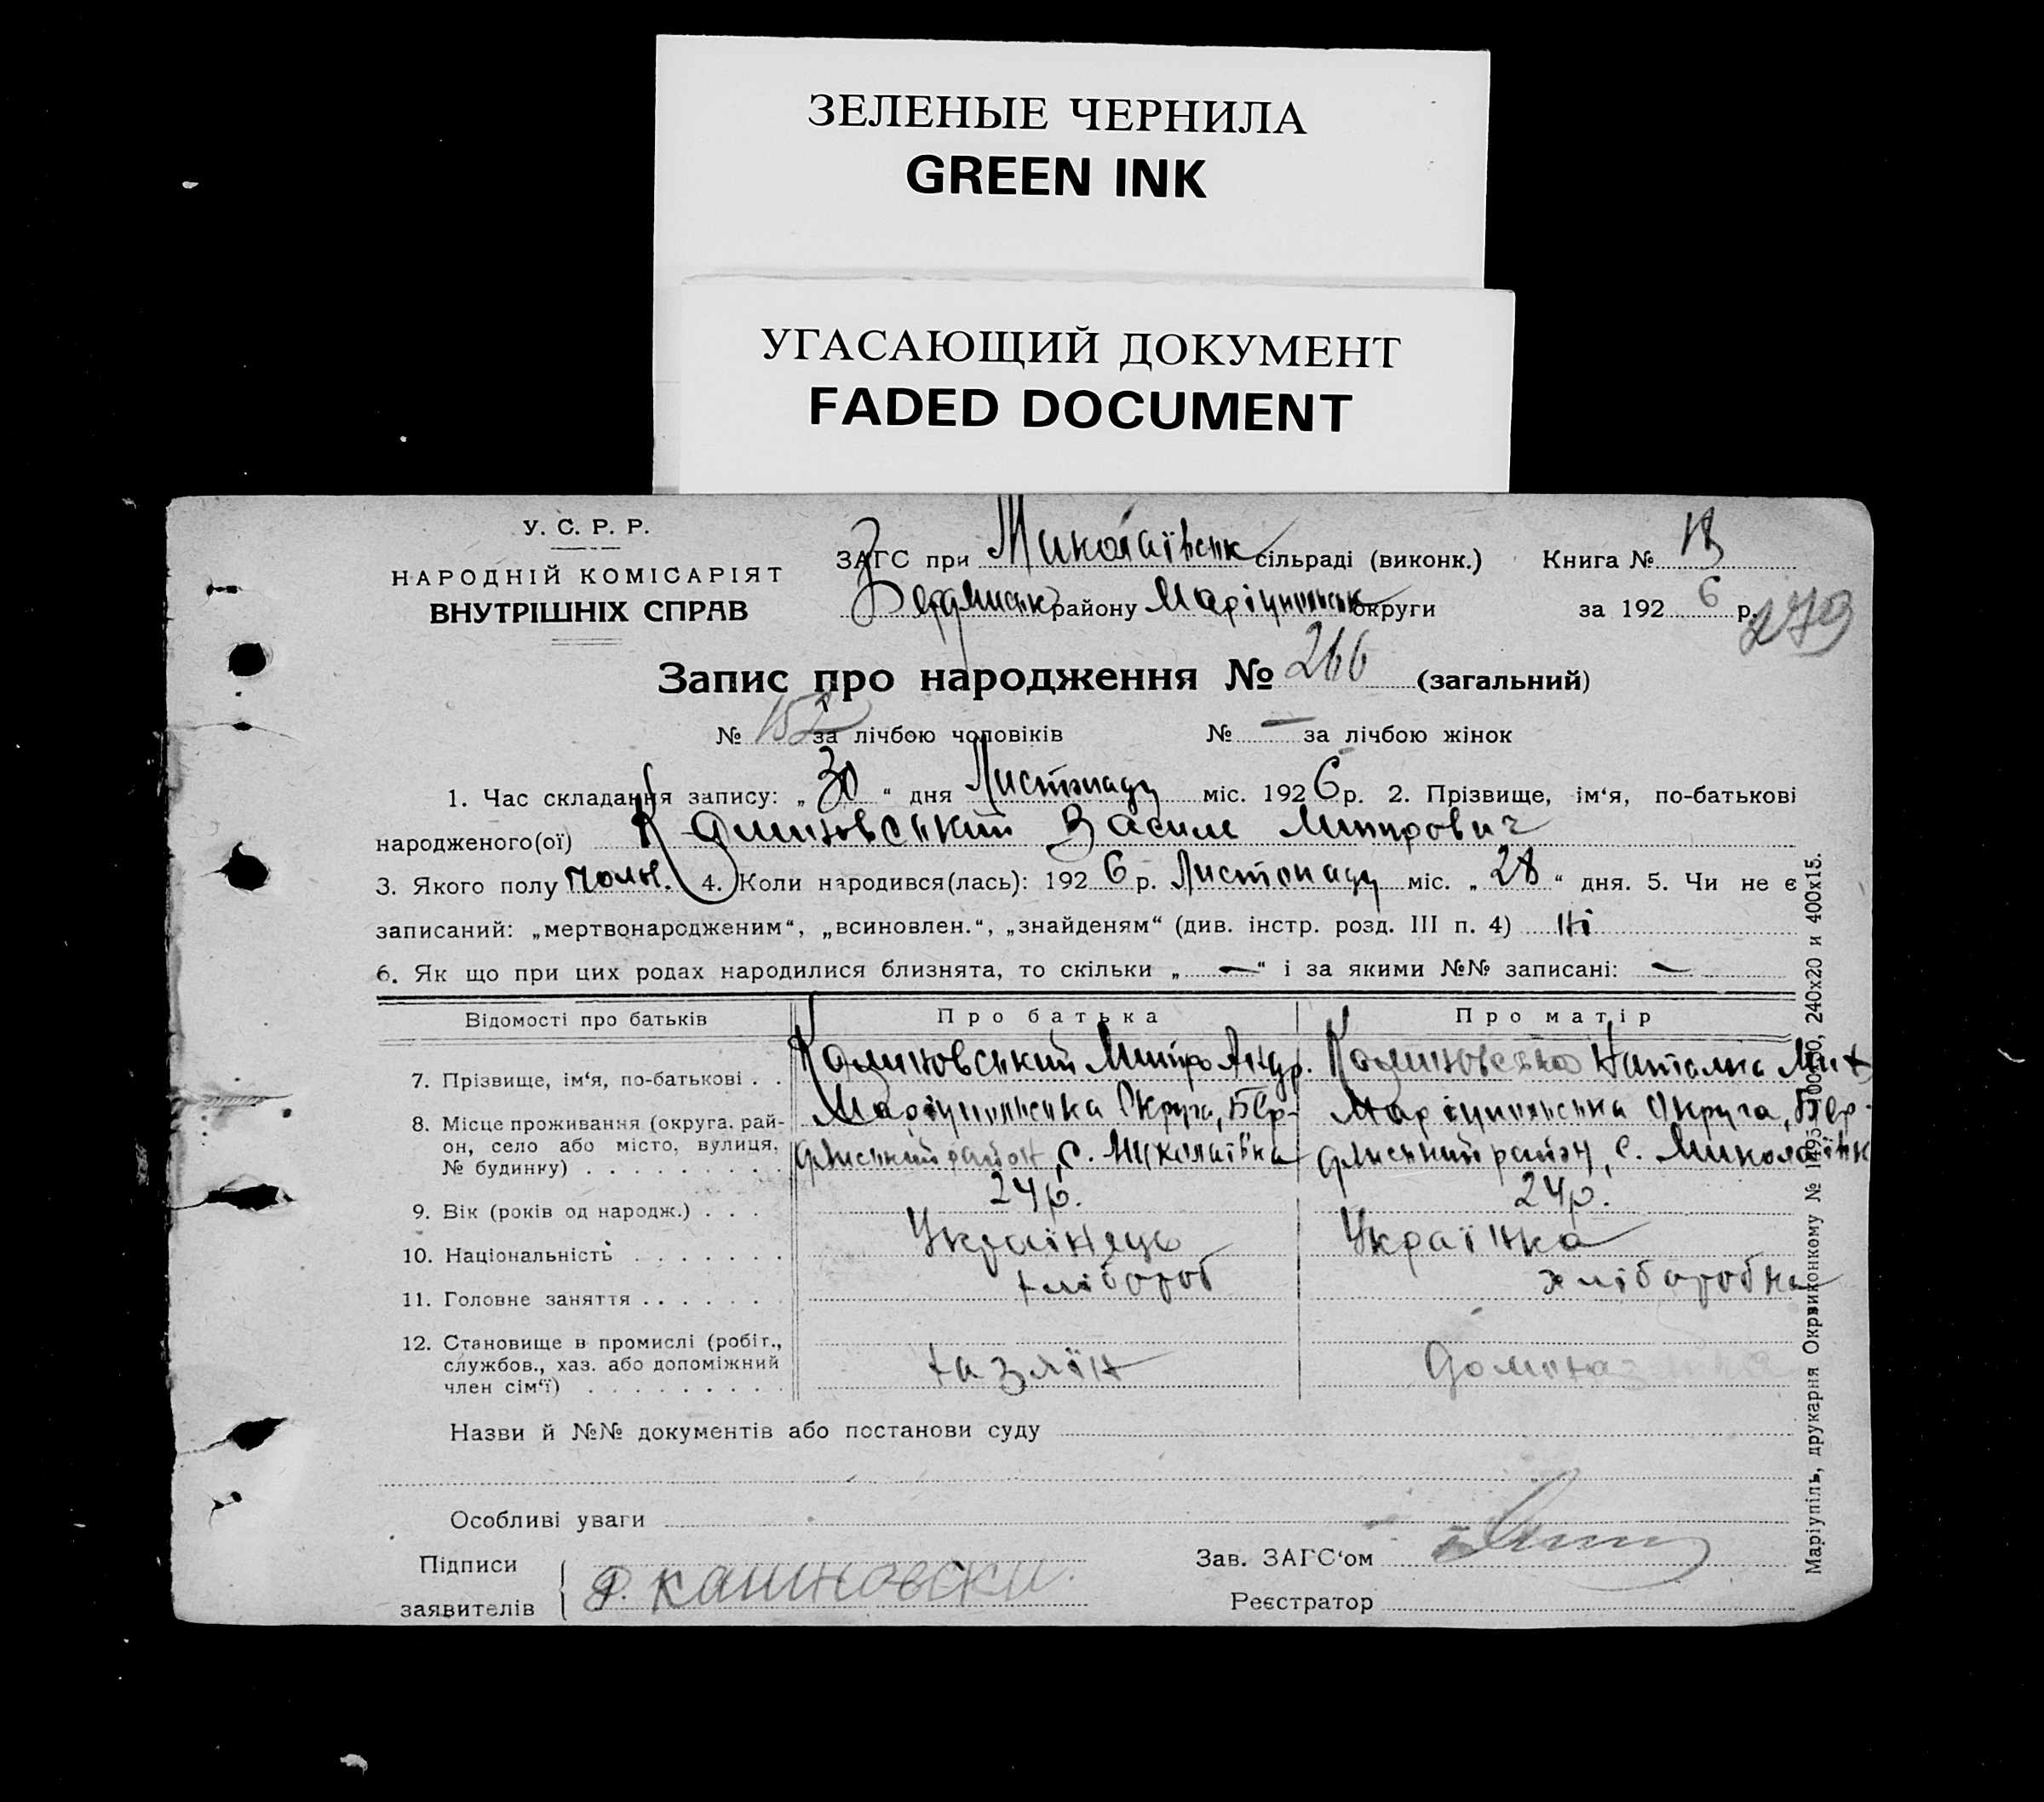 ЗЕЛЕНЫЕ ЧЕРНИЛА
GREEN INK
УГАСАЮЩИЙ ДОКУМЕНТ
FADED DOCUMENT
У. С. Р. Р.
НАРОДНІЙ КОМІСАРІЯТ
ВНУТРІШНІХ СПРАВ
ЗАГС при Миколаївськ сільраді (виконк.) Книга № 18
Бердянськ району Маріупольськ округи за 1926 р. 279
Запис про народження № 266 (загальний)
№ 152 за лічбою чоловіків № — за лічбою жінок
1. Час складання запису: „30“ дня Листопаду міс. 1926 р. 2. Прізвище, ім‘я, по-батькові
народженого(ої) Калиновський Василь Митрович
3. Якого полу чолов. 4. Коли народився(лась): 1926 р. Листопаду міс. „28“ дня. 5. Чи не є
записаний: „мертвонародженим“, „всиновлен.“, „знайденям“ (див. інстр. розд. III п. 4) Ні
6. Як що при цих родах народилися близнята, то скільки „—“ і за якими №№ записані: —
Відомості про батьків Про батька Про матір
7. Прізвище, ім‘я, по-батькові . . Калиновський Митро Андр. Калиновська Наталка Мих
8. Місце проживання (округа, рай- Маріупольська Округа, Бер- Маріупольська Округа, Бер-
он, село або місто, вулиця, № будинку) дянський район, с. Миколаївка дянський район, с. Миколаївк
9. Вік (років од народж.) . . . 24 р. 24 р.
10. Національність Українець Українка
11. Головне заняття хлібороб хліборобка
12. Становище в промислі (робіт.,
службов., хаз. або допоміжний хазяїн
член сім‘ї)
Назви й №№ документів або постанови суду
Особливі уваги
Підписи
заявителів Калиновски
Зав. ЗАГС‘ом
Реєстратор
Маріупіль, друкарня Окрвиконкому № 1495 240х20 и 400х15.